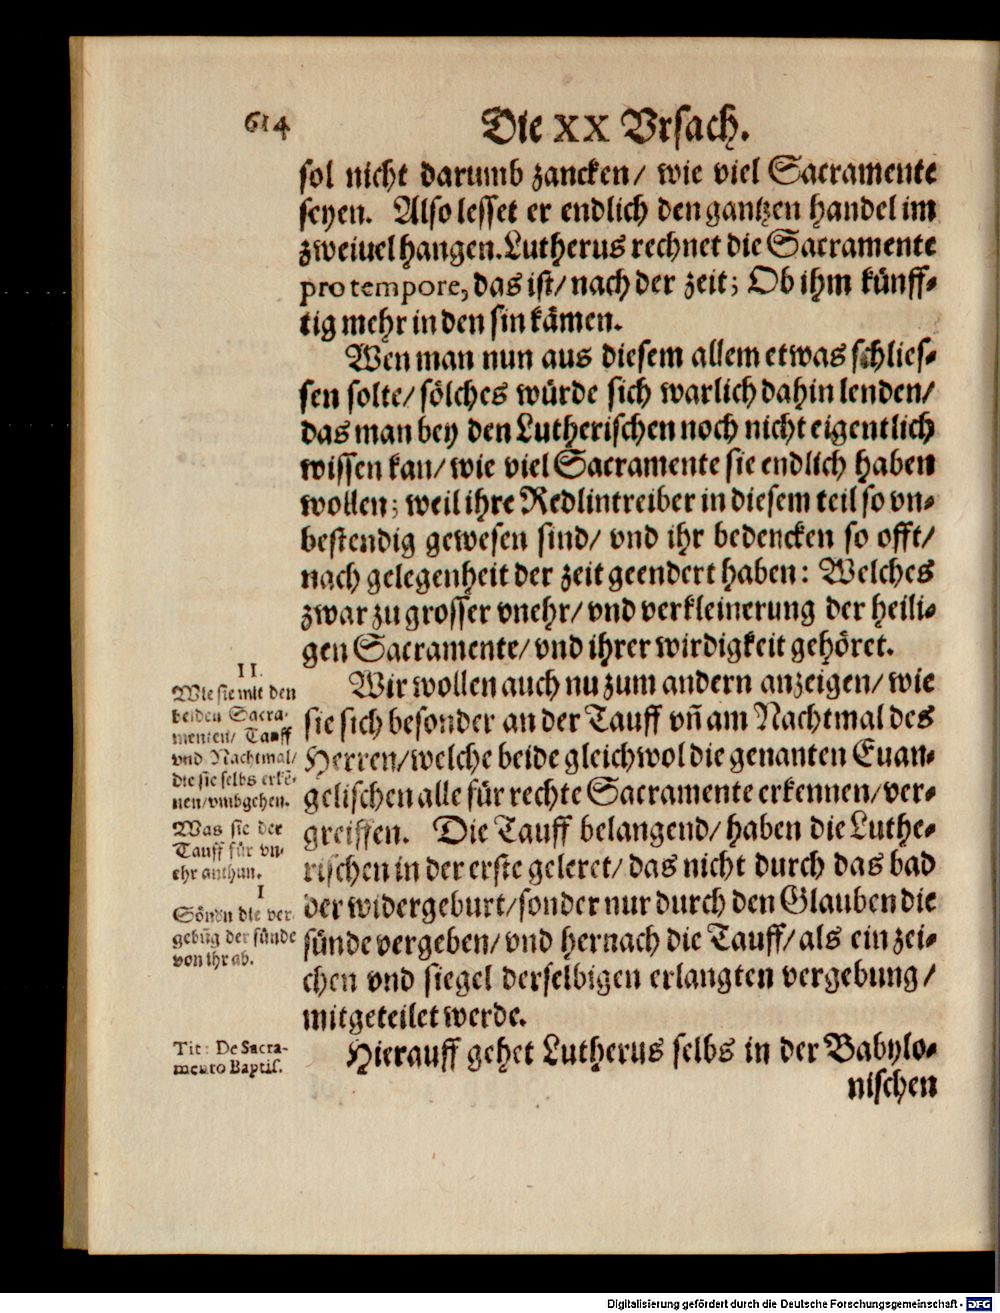 614
Die XX Vrsach.
sol nicht darumb zancken/ wie viel Sacramente
seyen. Also lesset er endlich den gantzen handel im
zweiuel hangen. Lutherus rechnet die Sacramente
pro tempore, das ist/ nach der zeit; Ob ihm künff-
tig mehr in den sin kämen.
Wen man nun aus diesem allem etwas schlies-
sen solte/ sölches würde sich warlich dahin lenden/
das man bey den Lutherischen noch nicht eigentlich
wissen kan/ wie viel Sacramente sie endlich haben
wollen; weil ihre Redlintreiber in diesem teil so vn-
bestendig gewesen sind/ vnd ihr bedencken so offt/
nach gelegenheit der zeit geendert haben: Welches
zwar zu grosser vnehr/ vnd verkleinerung der heili-
gen Sacramente/ vnd ihrer wirdigkeit gehöret.
Wir wollen auch nu zum andern anzeigen/ wie
sie sich besonder an der Tauff vñ am Nachtmal des
Herren/ welche beide gleichwol die genanten Euan-
gelischen alle für rechte Sacramente erkennen/ ver-
greiffen. Die Tauff belangend/ haben die Luthe-
rischen in der erste geleret/ das nicht durch das bad
der widergeburt/ sonder nur durch den Glauben die
sünde vergeben/ vnd hernach die Tauff/ als ein zei-
chen vnd siegel derselbigen erlangten vergebung/
mitgeteilet werde.
Hierauff gehet Lutherus selbs in der Babylo-
nischen
II.
Wie sie mit den
beiden Sacra-
menten/ Tauff
vnd Nachtmal/
die sie selbs erkē-
nen/ vmbgehen.
Was sie der
Tauff für vn-
ehr anthun.
I
Sönen die ver
gebūg der sünde
von ihr ab.
Tit: De Sacra-
mento Baptis.
Digitalisierung gefördert durch die Deutsche Forschungsgemeinschaft - DFG